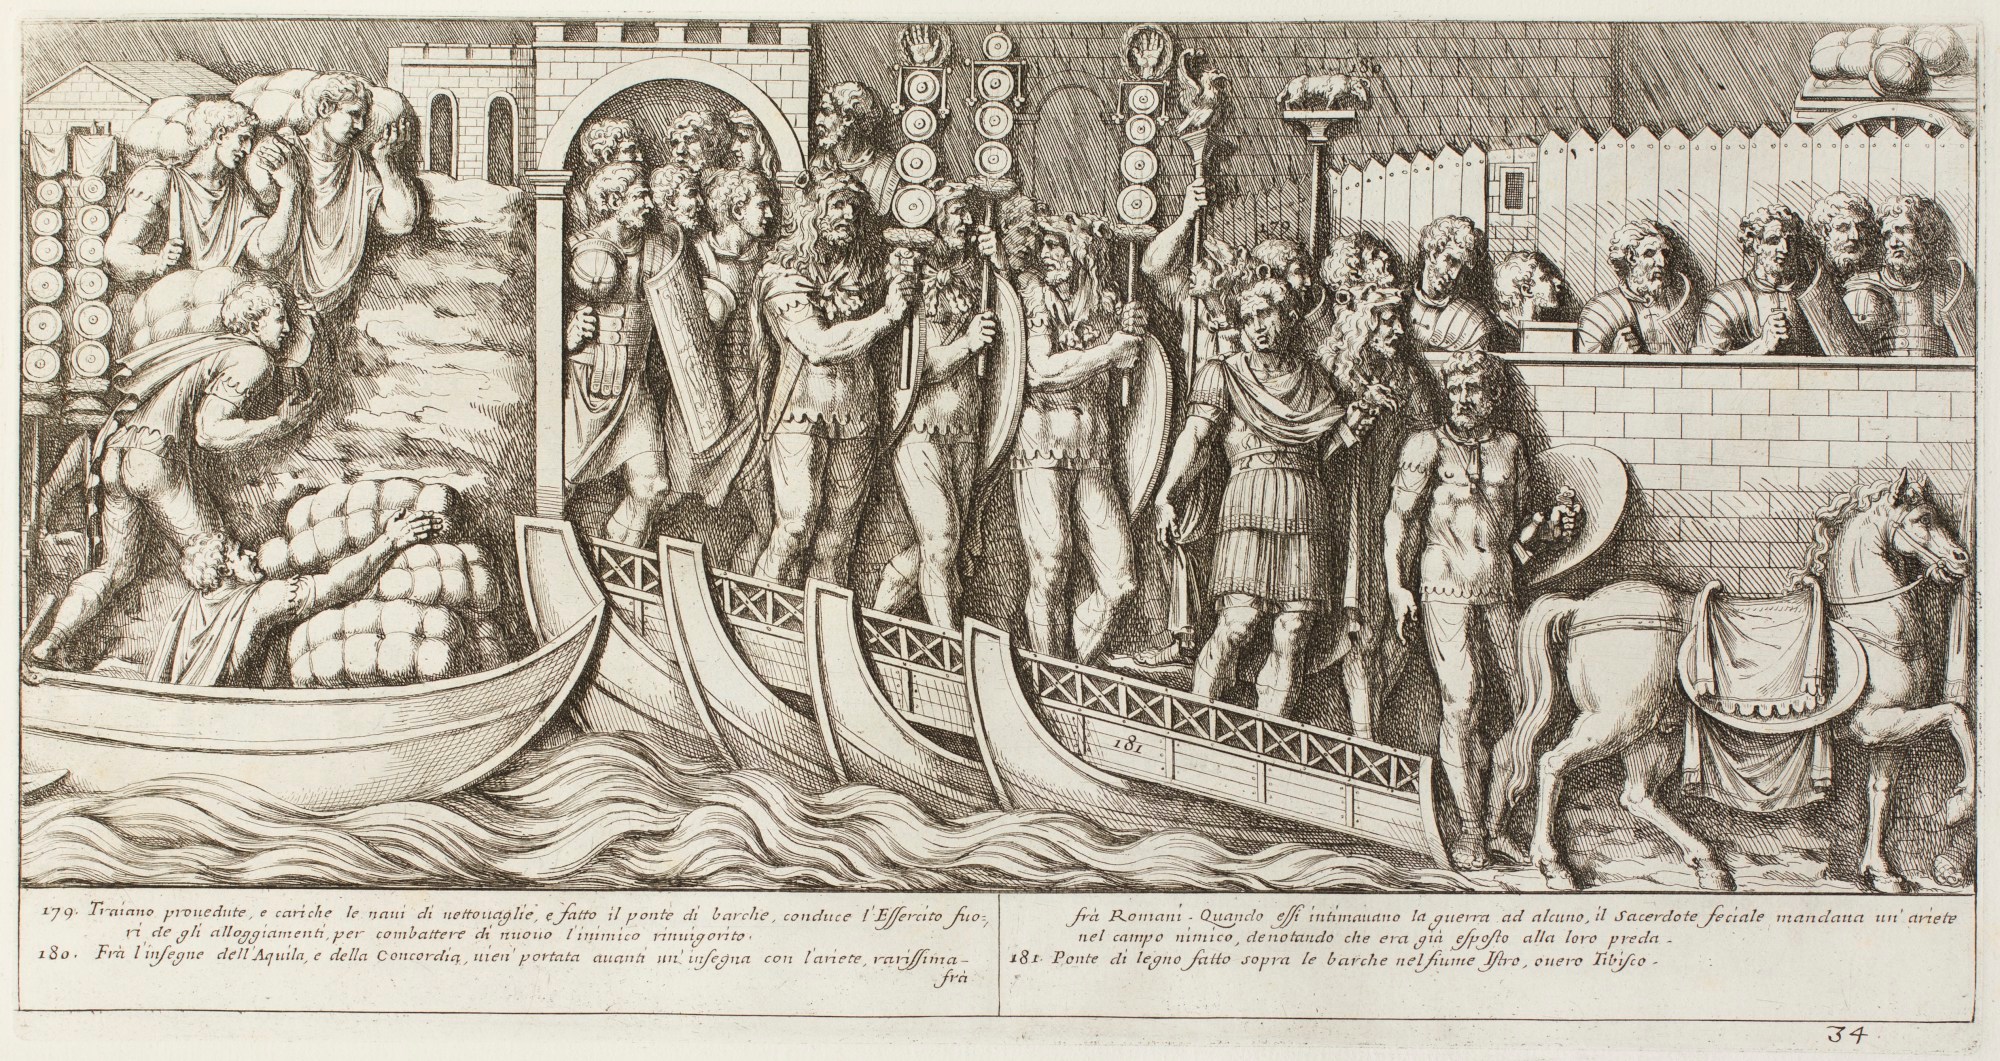 180
179
181
179. Traiano prouedute, e cariche le naui di uettouaglie, e fatto il ponte di barche, conduce l'Essercito fuo-
ri de gli alloggiamenti, per combattere di nuouo l'inimico rinuigorito.
180. Frà l'insegne dell'Aquila, e della Concordia, uien' portata auanti un' insegna con l'ariete, rarissima-
frà
frà Romani. Quando essi intimauano la guerra ad alcuno, il Sacerdote feciale mandaua un' ariete
nel campo nimico, denotando che era già esposto alla loro preda.
181. Ponte di legno fatto sopra le barche nel fiume Istro, ouero Tibisco.
34